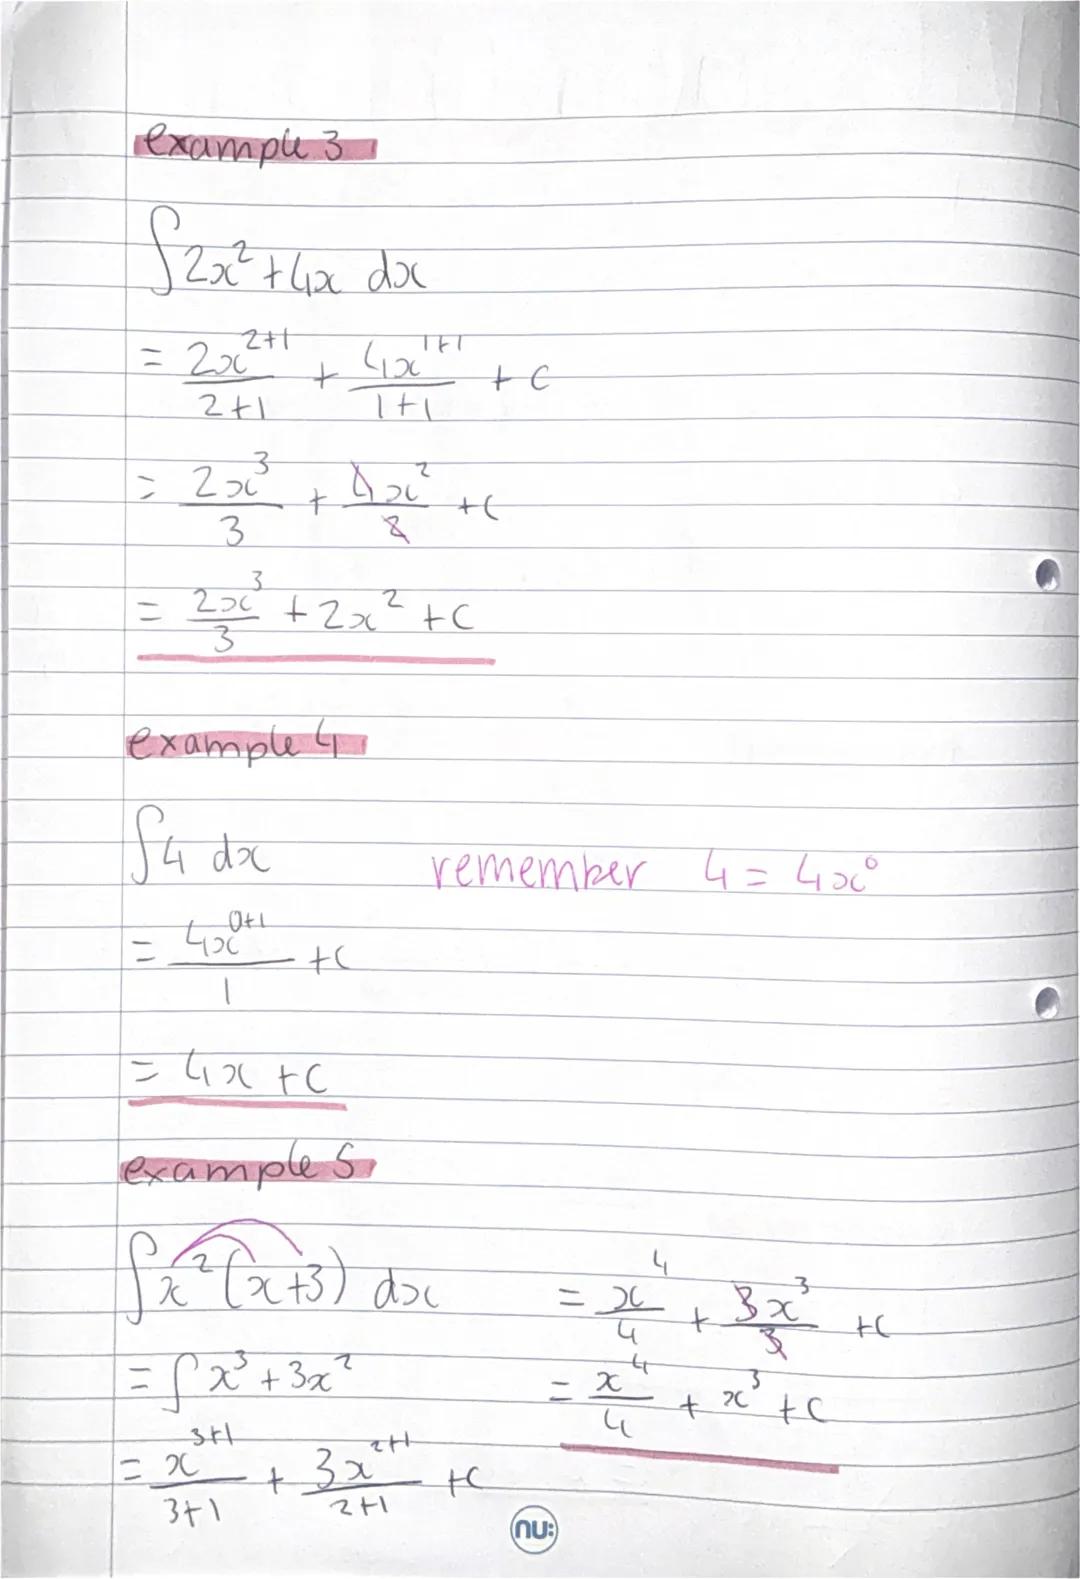 example 3
∫2x² + 4x dx
= 2x^(2+1)/(2+1) + 4x^(1+1)/(1+1) + c
= 2x³/3 + 4x²/2 + c
= 2x³/3 + 2x² + c
example 4
∫4 dx remember 4 = 4x⁰
= 4x^(0+1)/1 + c
= 4x + c
example 5
∫x²(x+3) dx
= ∫x³ + 3x²
= x^(3+1)/(3+1) + 3x^(2+1)/(2+1) + c
= x⁴/4 + 3x³/3 + c
= x⁴/4 + x³ + c
nu: